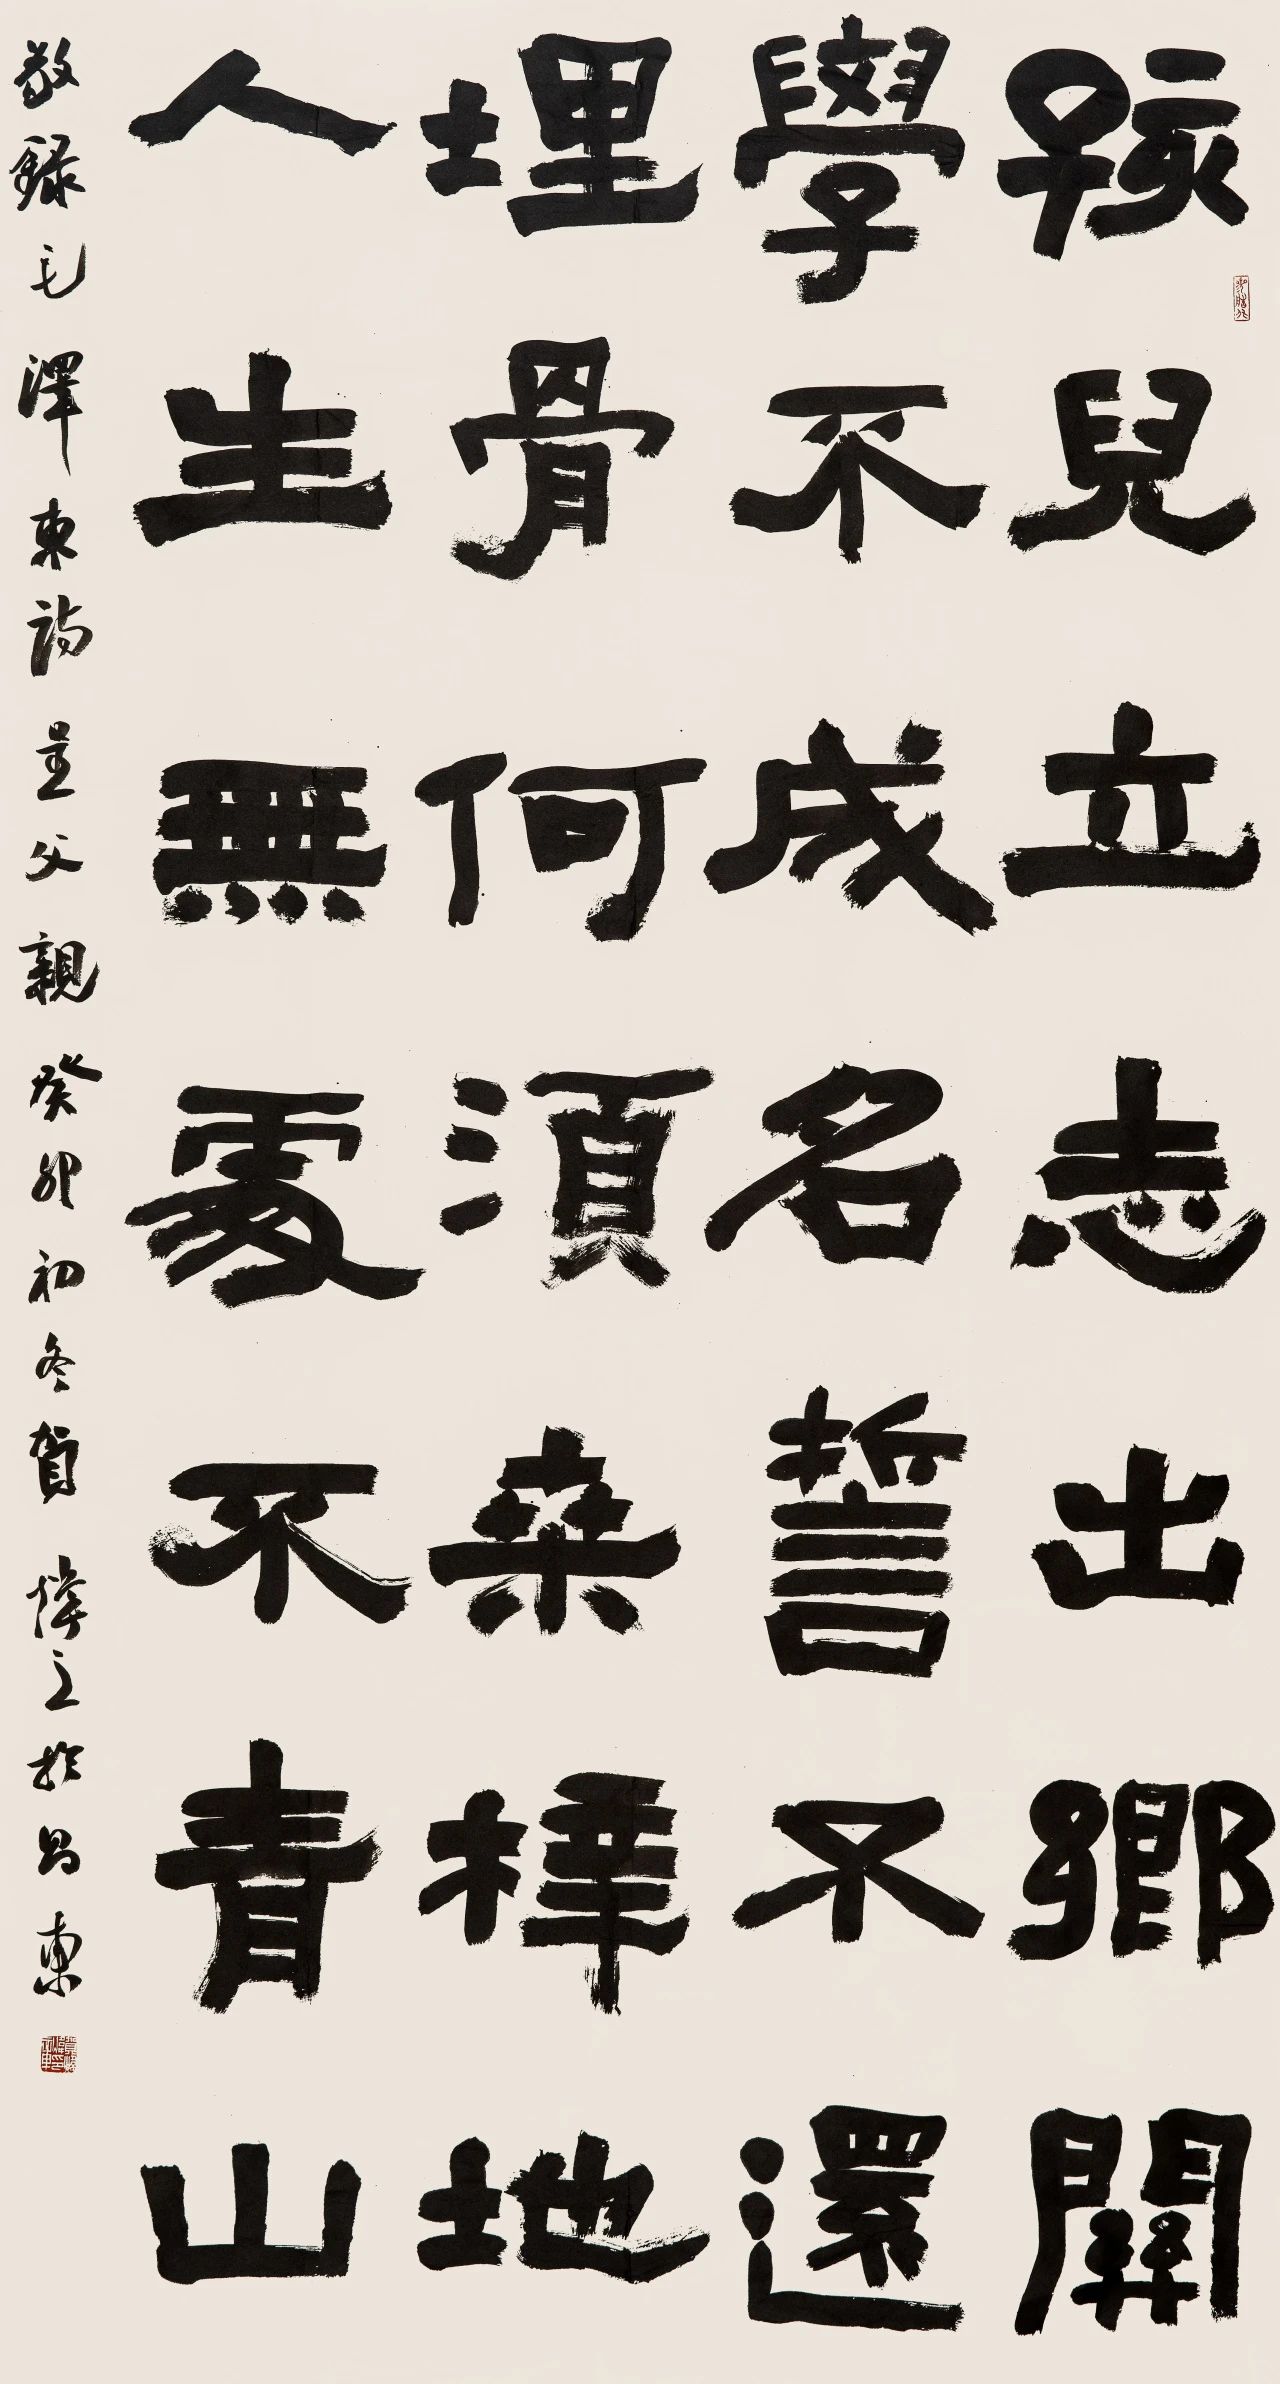 孩兒立志出鄉關
學不成名誓不還
埋骨何須桑梓地
人生無處不青山
敬錄毛澤東詩呈父親癸卯初冬賀煒立於昌東